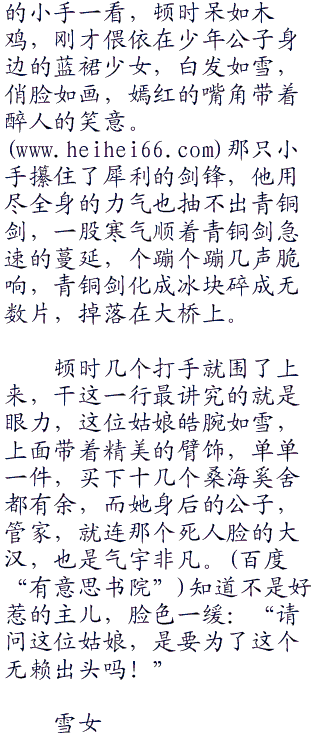 的小手一看，顿时呆如木
鸡，刚才偎依在少年公子身
边的蓝裙少女，白发如雪，
俏脸如画，嫣红的嘴角带着
醉人的笑意。
(www.heihei66.com)那只小
手攥住了犀利的剑锋，他用
尽全身的力气也抽不出青铜
剑，一股寒气顺着青铜剑急
速的蔓延，个蹦个蹦几声脆
响，青铜剑化成冰块碎成无
数片，掉落在大桥上。
顿时几个打手就围了上
来，干这一行最讲究的就是
眼力，这位姑娘皓腕如雪，
上面带着精美的臂饰，单单
一件，买下十几个桑海奚舍
都有余，而她身后的公子，
管家，就连那个死人脸的大
汉，也是气宇非凡。(百度
“有意思书院”)知道不是好
惹的主儿，脸色一缓：“请
问这位姑娘，是要为了这个
无赖出头吗！”
雪女